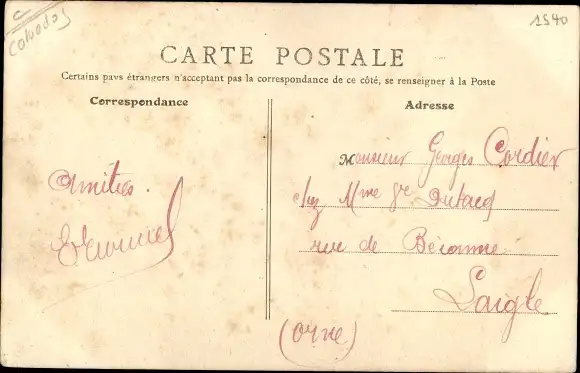 Calvados
1540
CARTE POSTALE
Certains pays étrangers n'acceptant pas la correspondance de ce côté, se renseigner à la Poste
Correspondance
Adresse
Amitiés.
Monsieur Georges Cordier
chez Mme Ve Dutacq
rue de Bécanne
Laigle
(Orne)